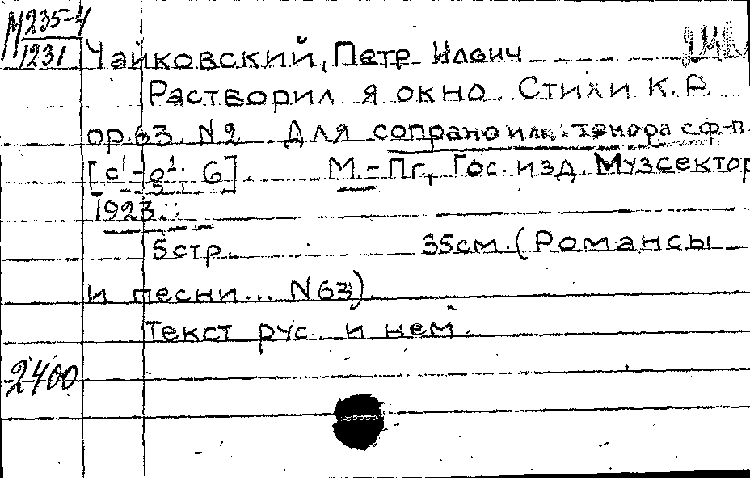 М235-4
1231
Чайковский, Петр Илвич
Растворил я окно. Стихи К.Р.
ор.63 N2 Для сопрано или тенора с ф-п.
М.-Пг, Гос. изд. Музсектор
1923.
5 стр. 35см. (Романсы
и песни... N63)
Текст рус. и нем.
2400